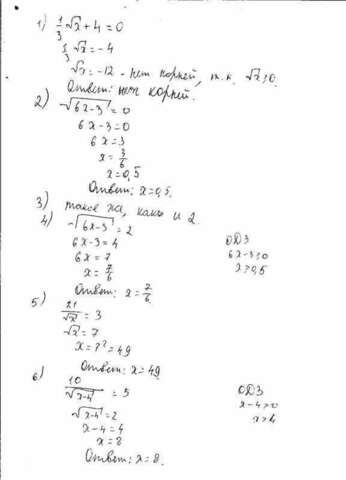 1) 1/3 √x + 4 = 0
1/3 √x = -4
√x = -12 - нет корней, т.к. √x ≥ 0.
Ответ: нет корней.
2) √(6x-3) = 0
6x-3=0
6x=3
x = 3/6
x=0,5
Ответ: x=0,5.
3) такое же, как и 2.
4) √(6x-3) = 2
6x-3=4
6x=7
x = 7/6
Ответ: x = 7/6.
ОДЗ
6x-3≥0
x≥0,5
5) 21/√x = 3
√x = 7
x = 7² = 49
Ответ: x=49.
6) 10/√(x-4) = 5
√(x-4) = 2
x-4=4
x=8
Ответ: x=8.
ОДЗ
x-4>0
x>4